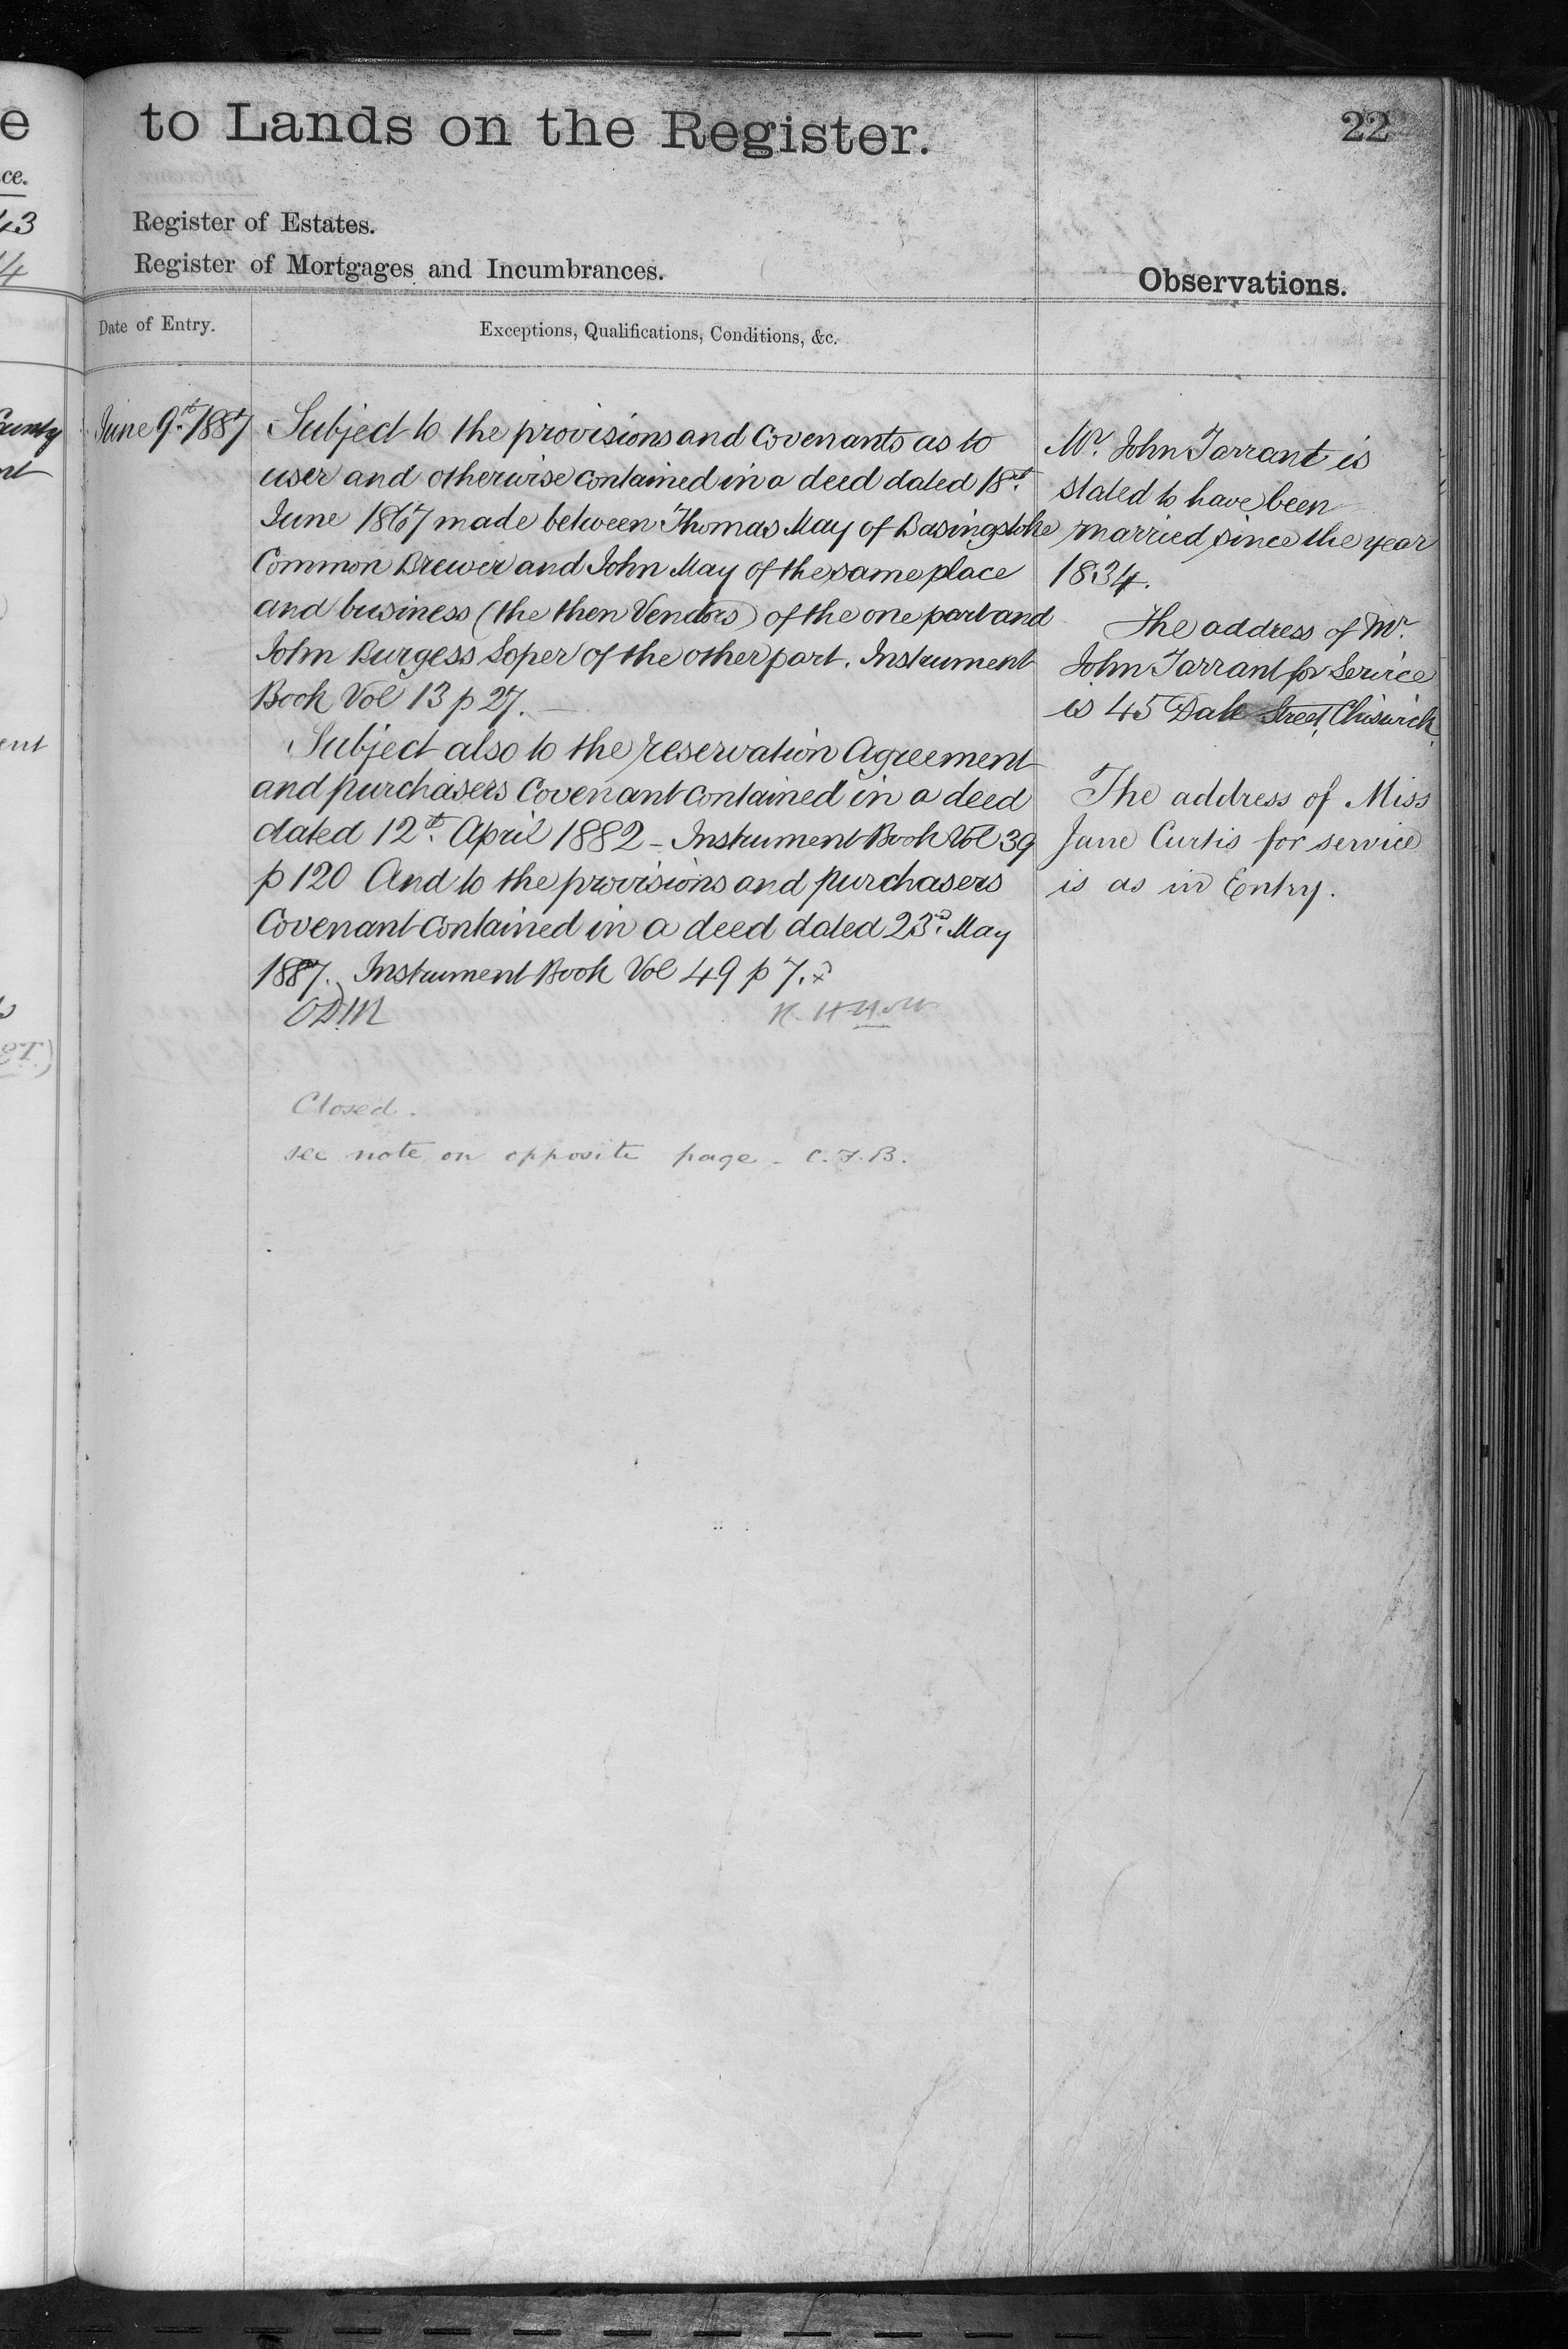 e
to Lands on the Register.
22
ce.
43
14
Register of Estates.
Register of Mortgages and Incumbrances.
Observations.
Date of Entry.
Exceptions, Qualifications, Conditions, &c.
June 9th. 1887
Subject to the provisions and Covenants as to
user and otherwise contained in a deed dated 18th.
June 1867 made between Thomas May of Basingstoke
Common Brewer and John May of the same place
and business (the then Vendors) of the one part and
John Burgess Soper of the other part. Instrument
Book Vol 13 p 27.
Subject also to the reservation Agreement
and purchasers Covenant contained in a deed
dated 12th. April 1882 - Instrument Book Vol 39
p 120 And to the provisions and purchasers
Covenant contained in a deed dated 23d. May
1887. Instrument Book Vol 49 p 7. x
ODM
Closed.
see note on opposite page - C.F.B.
Mr. John Tarrant is
stated to have been
married since the year
1834.
The address of Mr.
John Tarrant for Service
is 45 Dale Street, Chiswick.
The address of Miss
Jane Curtis for service
is as in Entry.